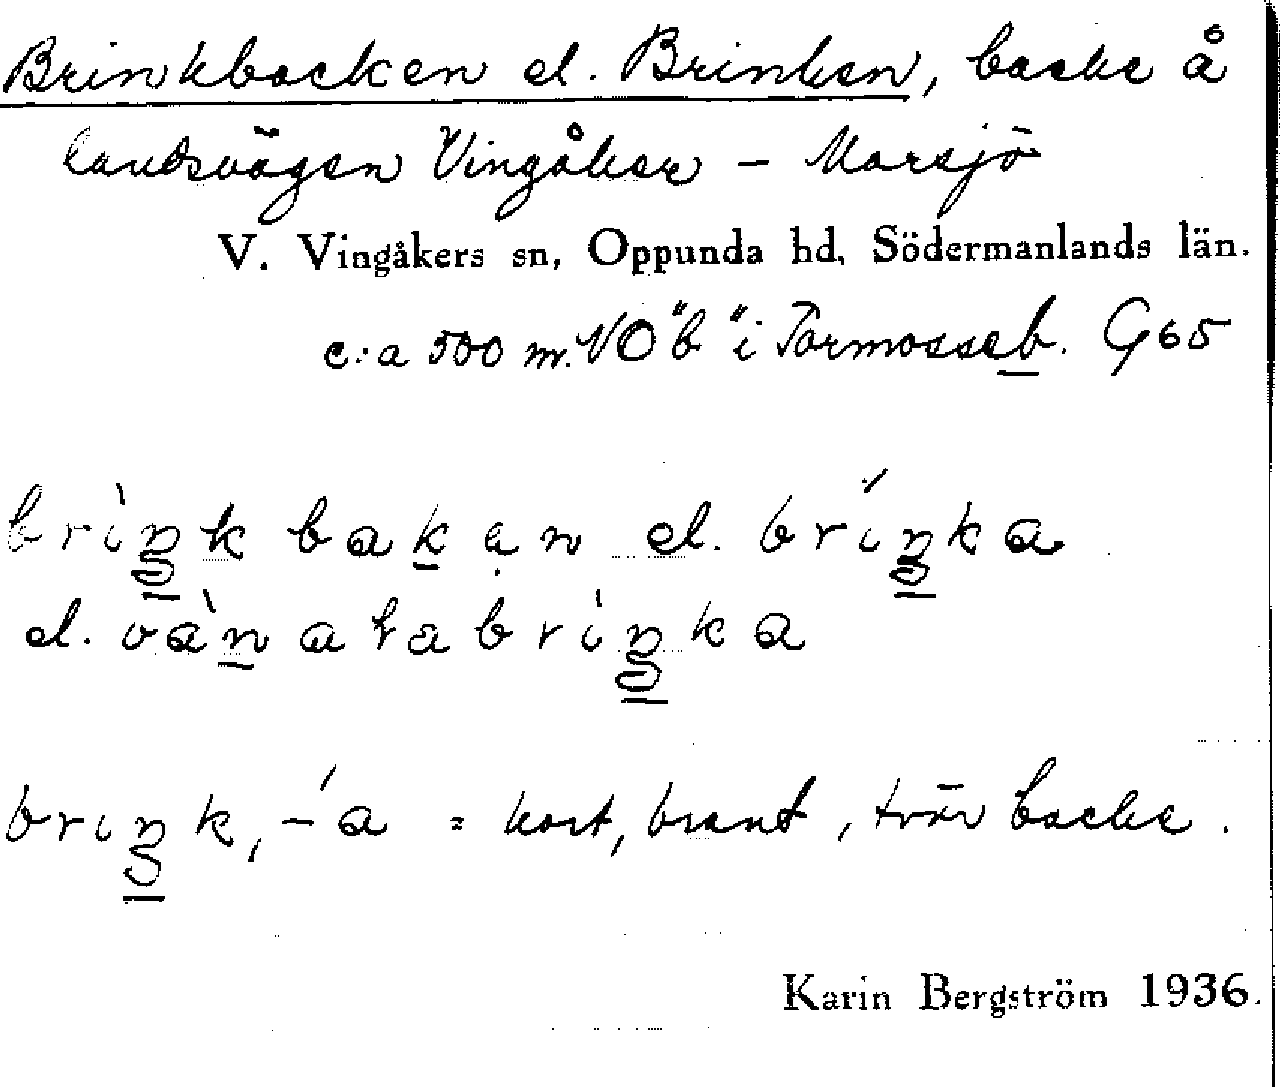 Brinkbacken el. Brinken, backe å
landsvägen Vingåker – Marsjö
V. Vingåkers sn, Oppunda hd, Södermanlands län.
c:a 500 m. NO "b" i Tormosseb. G65
brìŋk bakan el. bríŋka
el. vànatabriŋka
briŋk, –́a = kort, brant, tvär backe.
Karin Bergström 1936.